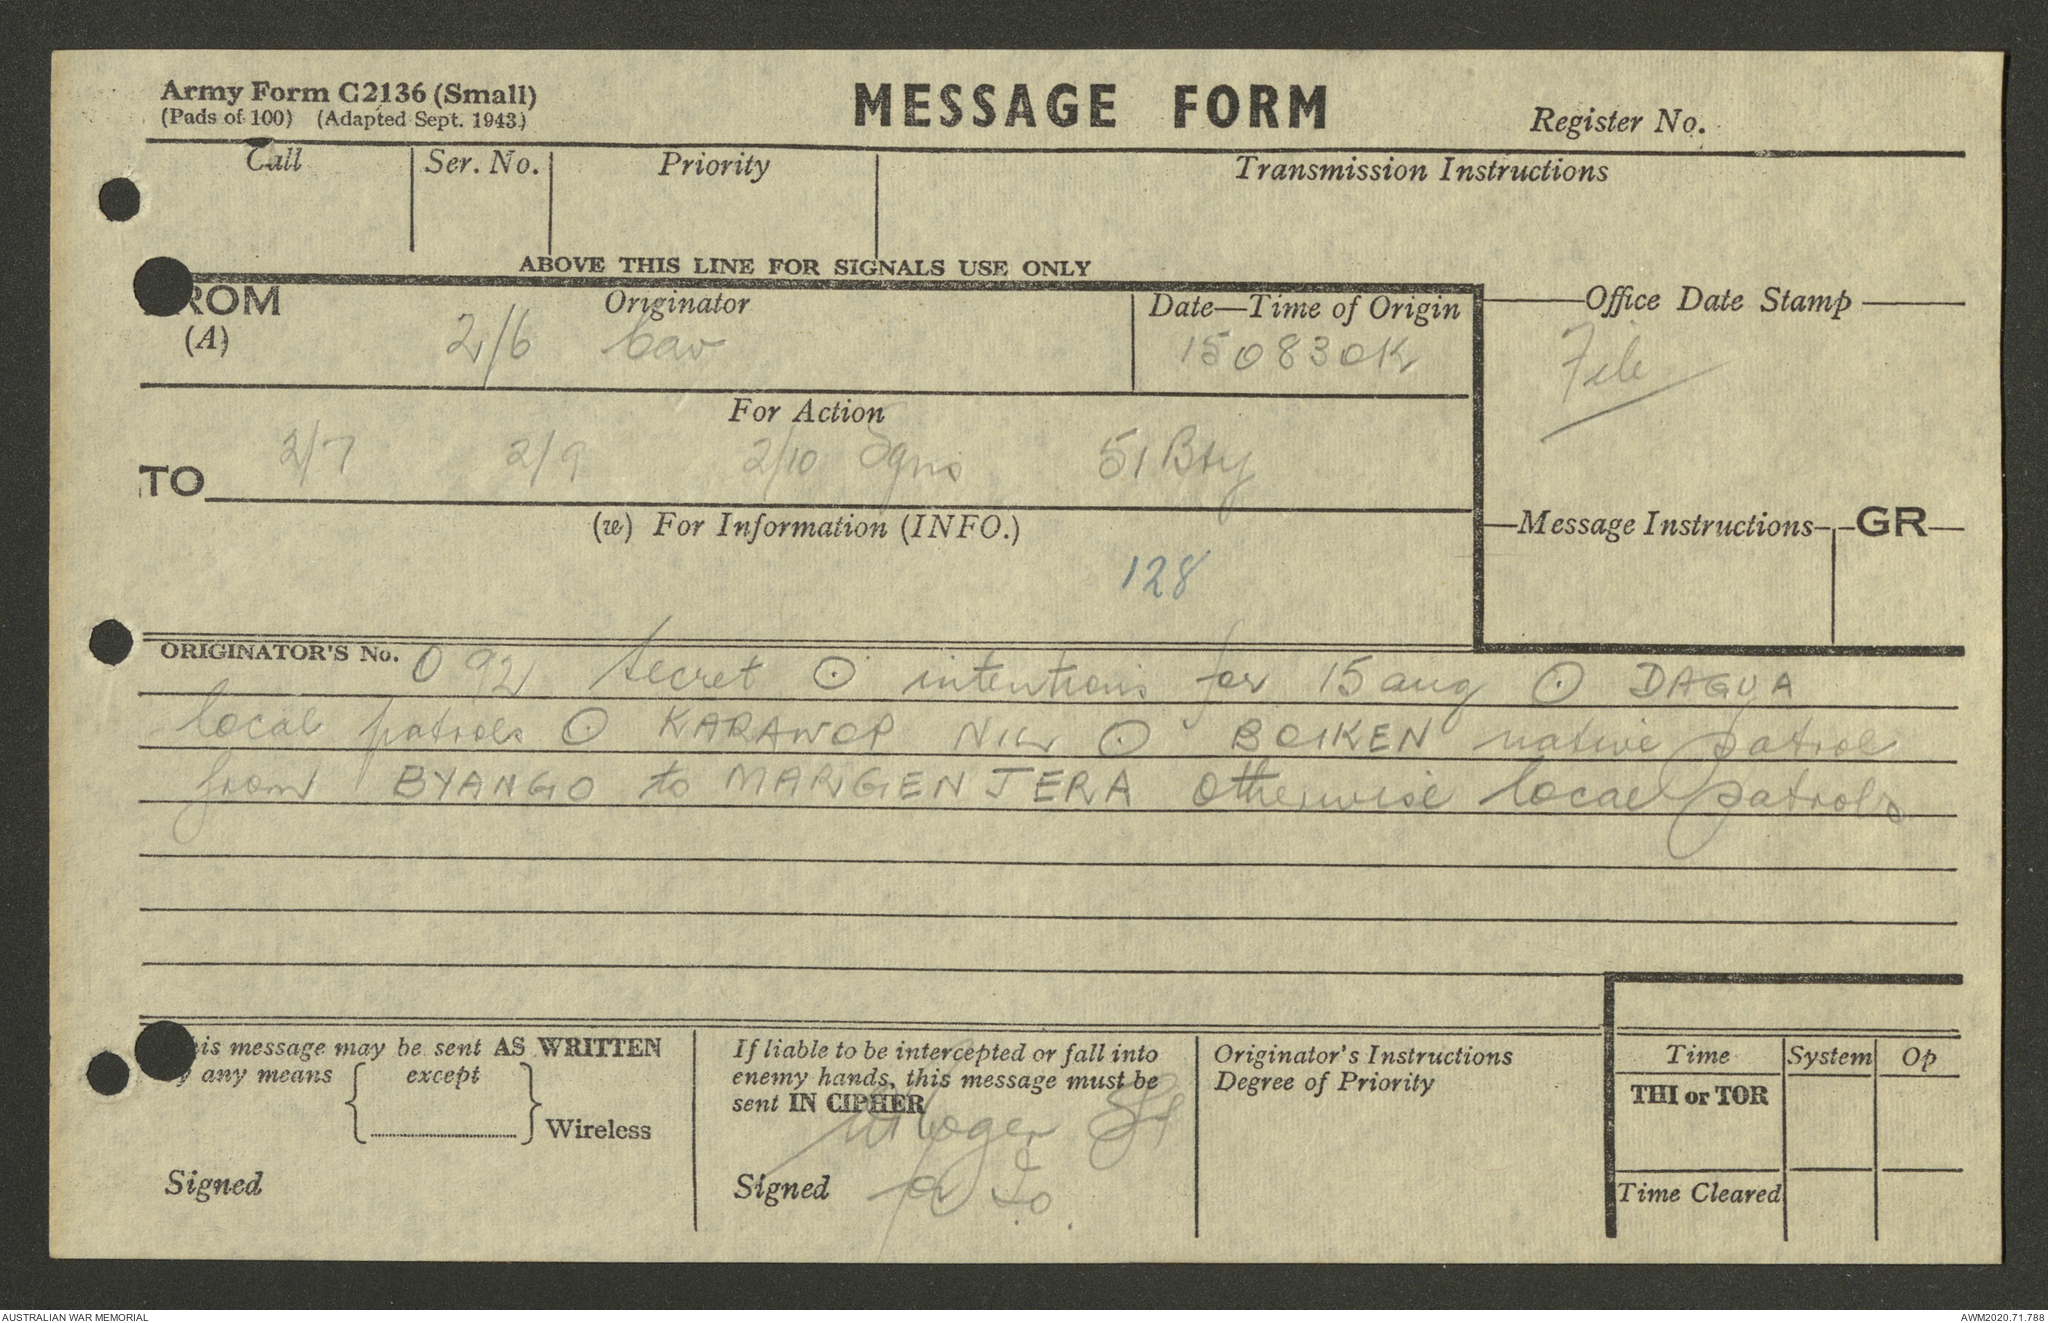 Army Form C2136 (Small)
(Pads of 100) (Adapted Sept. 1943)
MESSAGE FORM
Register No.
Call Ser. No. Priority Transmission Instructions
ABOVE THIS LINE FOR SIGNALS USE ONLY
ROM
(A)
Originator
2/6 Cav
Date—Time of Origin
150830K
Office Date Stamp
File
For Action
TO 2/7 2/9 2/10 Sqns 51 Bty
(w) For Information (INFO.)
128
Message Instructions GR
ORIGINATOR'S No. O 92 secret ⊙ intentions for 15 aug ⊙ DAGUA
local patrols ⊙ KARAWOP NIL ⊙ BOIKEN native patrol
from BYANGO to MARGENJERA otherwise local patrols
his message may be sent AS WRITTEN
y any means { except } Wireless
Signed
If liable to be intercepted or fall into
enemy hands, this message must be
sent IN CIPHER
Signed
Originator's Instructions
Degree of Priority
Time System Op
THI or TOR
Time Cleared
AUSTRALIAN WAR MEMORIAL
AWM2020.71.788